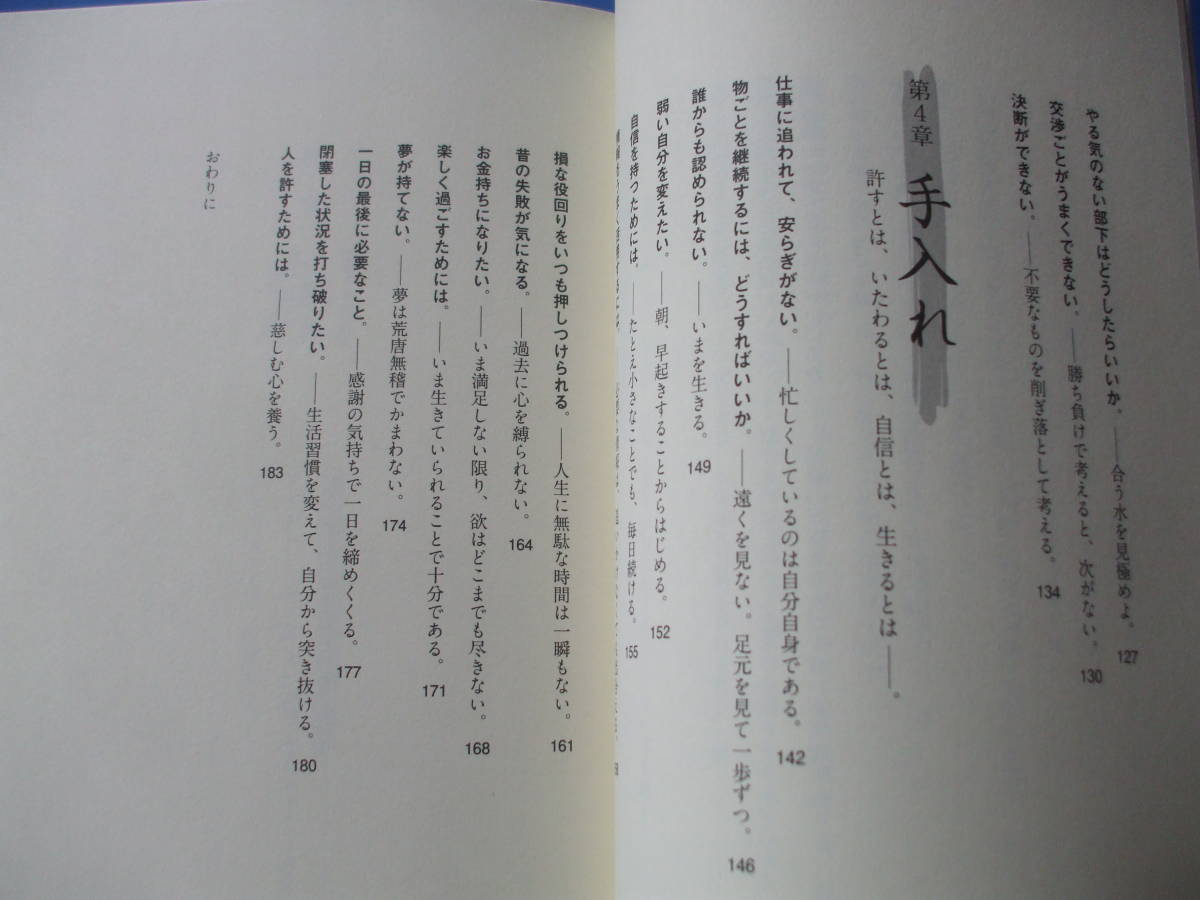 やる気のない部下はどうしたらいいか。――合う水を見極めよ。 127
交渉ごとがうまくできない。――勝ち負けで考えると、次がない。 130
決断ができない。――不要なものを削ぎ落として考える。 134
第4章 手入れ
許すとは、いたわるとは、自信とは、生きるとは――。
仕事に追われて、安らぎがない。――忙しくしているのは自分自身である。 142
物ごとを継続するには、どうすればいいか。――遠くを見ない。足元を見て一歩ずつ。 146
誰からも認められない。――いまを生きる。 149
弱い自分を変えたい。――朝、早起きすることからはじめる。 152
自信を持つためには。――たとえ小さなことでも、毎日続ける。 155
損な役回りをいつも押しつけられる。――人生に無駄な時間は一瞬もない。 161
昔の失敗が気になる。――過去に心を縛られない。 164
お金持ちになりたい。――いま満足しない限り、欲はどこまでも尽きない。 168
楽しく過ごすためには。――いま生きていられることで十分である。 171
夢が持てない。――夢は荒唐無稽でかまわない。 174
一日の最後に必要なこと。――感謝の気持ちで一日を締めくくる。 177
閉塞した状況を打ち破りたい。――生活習慣を変えて、自分から突き抜ける。 180
人を許すためには。――慈しむ心を養う。 183
おわりに